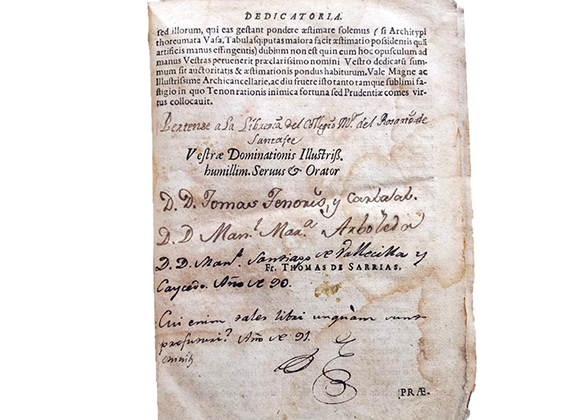 DEDICATORIA.
sed illorum, qui eas gestant pondere æstimare solemus (si Architypi
thoreumata Vasa, Tabulasq; putas maiora facit æstimatio possidentis quã
artificis manus effingentis) dubium non est quin eum hoc opusculum ad
manus Vestras peruenerit præclarissimo nomini Vestro dedicatũ sum-
mum sit auctoritatis & æstimationis pondus habiturum. Vale Magne ac
Illustrissime Archicancellarie, ac diu fruere isto tanto tamque sublimi fa-
stigio in quo Te non rationis inimica fortuna sed Prudentiæ comes vir-
tus collocauit.
Pertenese a la Libreria del Collegio Mr. del Rosario de
Santafee
Vestræ Dominationis Illustriß.
humillim. Seruus & Orator
D. D. Tomas Tenorio, y Carbajal.
D. D Manl. Mara. Arboleda
D. D. Manl. Santiago de Vallecilla y
Fr. THOMAS DE SARRIAS.
Caycedo. Año de 90.
Cui enim tales libri unquam sunt
profuturi? Año de 91.
PRÆ.